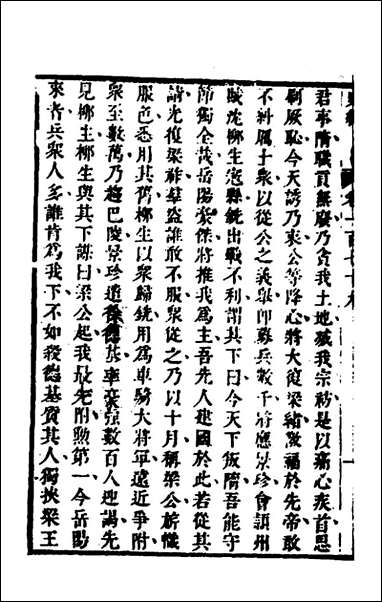 君事隋職貢無廢乃貪我土地滅我宗祊是以痛心疾首思
刷厥恥今天誘乃衷公等降心將大復梁緒徼福於先帝敢
不糾厲士衆以從公之義舉即募兵數千將應景珍會頴州
賊沈柳生寇縣銑出戰不利謂其下曰今天下叛隋吾能守
節獨全哉岳陽豪傑將推我爲主吾先人建國於此若從其
請光復梁祚羣盜誰敢不服衆從之乃以十月稱梁公旂幟
服色悉用其舊柳生以衆歸銑用爲車騎大將軍遠近爭附
衆至數萬乃趨巴陵景珍遣徐德基率豪强數百人迎謁先
見柳生柳生與其下謀曰梁公起我最先附勲第一今岳陽
來者兵衆人多誰肯爲我下不如殺德基質其人獨挾梁王